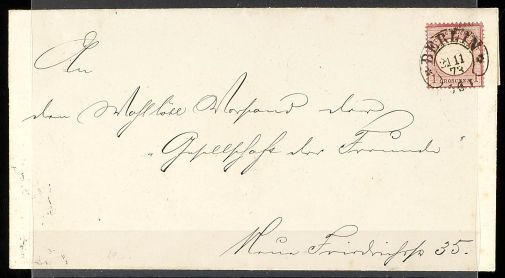 An
den Wohllöbl Vorstand der
„Gesellschaft der Freunde“
Neue Friedrichsst 35.
* BERLIN *
21 11
73
1 GROSCHEN 1